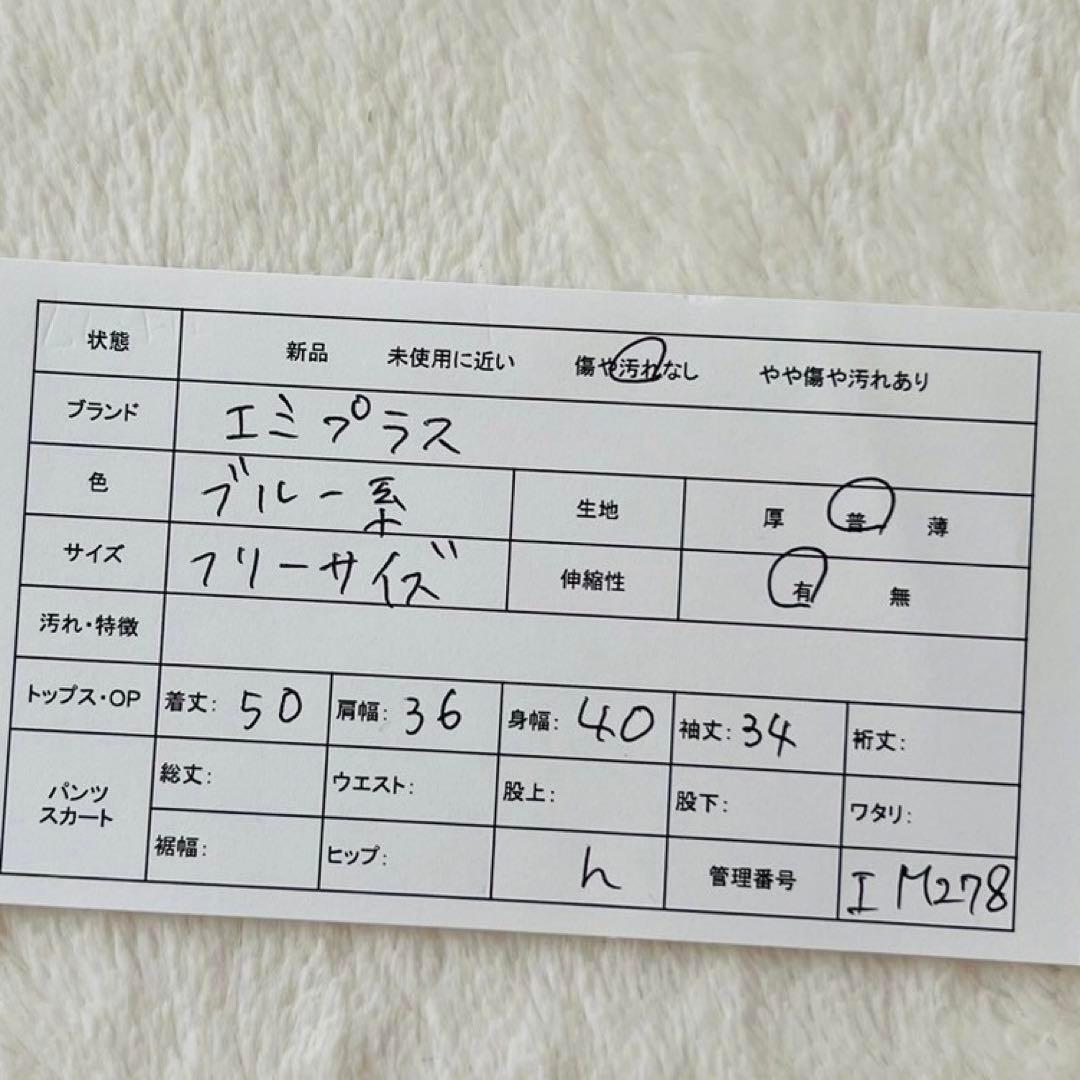 状態 新品 未使用に近い 傷や汚れなし やや傷や汚れあり
ブランド エミプラス
色 ブルー系 生地 厚 普 薄
サイズ フリーサイズ 伸縮性 有 無
汚れ・特徴
トップス・OP 着丈: 50 肩幅: 36 身幅: 40 袖丈: 34 裄丈:
パンツ スカート 総丈: ウエスト: 股上: 股下: ワタリ:
裾幅: ヒップ: h 管理番号 IM278